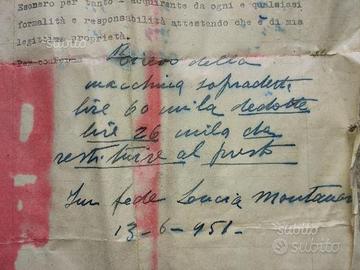 Esonero per tanto - acquirente da ogni e qualsiasi
formalità e responsabilità attestando che è di mia
legittima proprietà.
Per
Ricevo della
macchina sopradetta
lire 60 mila dedotte
lire 26 mila da
restituire al
In fede
13-6-951-
Subito.it